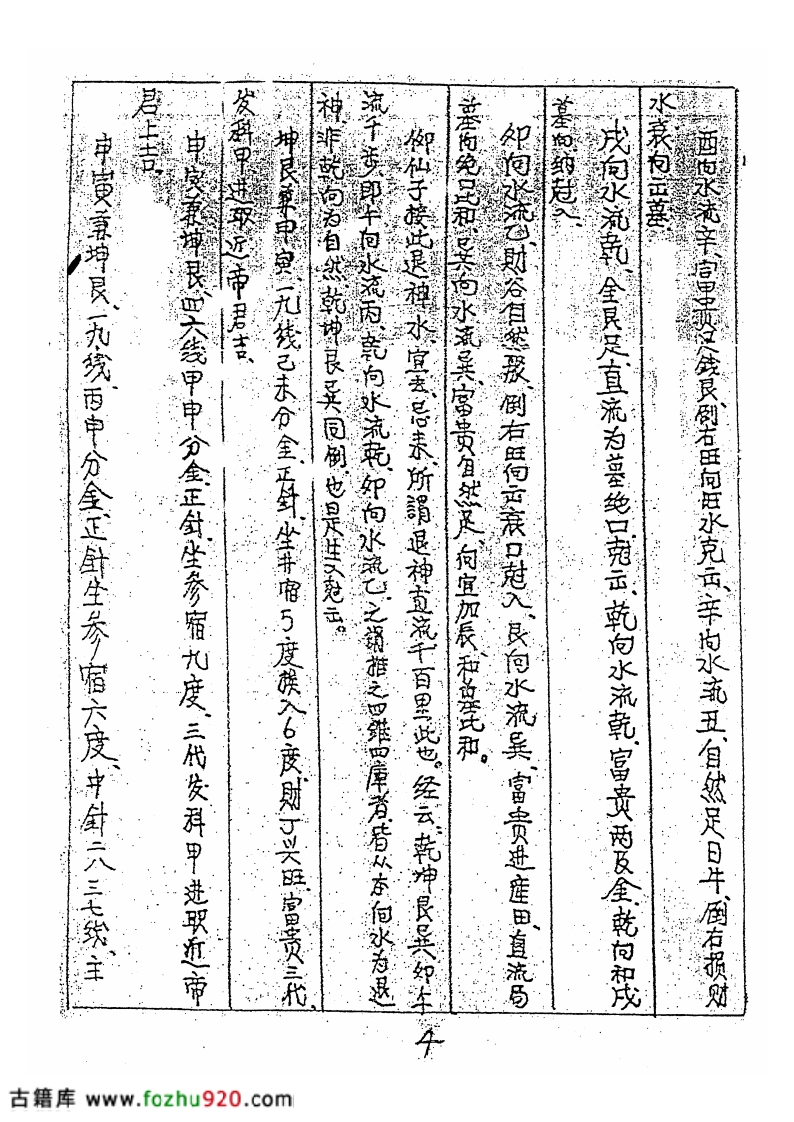 酉向水流辛、富貴足錢艮、倒右旺向旺水克云、辛向水流丑、自然足日牛、倒右損财
水衰向云墓
戌向水流乾、全艮足、直流为墓绝口尅云、乾向水流乾、富贵两及全、乾向和戌
墓向纳尅入、
卯向水流乙、財谷自然聚、倒右旺向云衰口尅入、艮向水流巽、富貴进産田、直流局
墓向绝比和、巽向水流巽、富贵自然足、向宜加辰、和墓比和。
御仙子接此退神水、宜去忌来、所謂退神直流千百里此也。经云、乾坤艮巽卯午
流千步、即午向水流丙、乾向水流乾、卯向水流乙、之謂推之四維四庫者、皆从本向水为退
神、非乾向为自然乾坤艮巽同倒、也是生又尅云。
坤艮兼申寅、一九线己未分金、正針、坐井宿5度族入6度、財丁兴旺、富贵三代、
发科甲进取近帝君吉、
申寅兼坤艮、四六线甲申分金、正針、坐参宿九度、三代发科甲进取近帝
君上吉。
申寅兼坤艮、一九线、丙申分金、正針坐参宿六度、中針二八三七线、主
4
古籍库 www.fozhu920.com